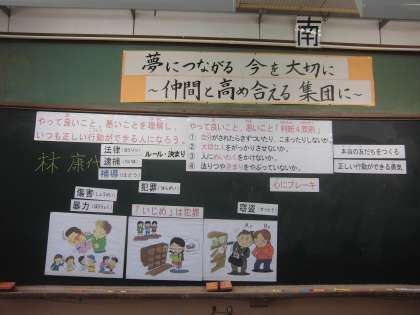 南
夢につながる 今を大切に
～仲間と高め合える 集団に～
やって良いこと、悪いことを理解し、
いつも正しい行動ができる人になろう。
林 康代
法律
逮捕
補導
ルール・決まり
犯罪
傷害
暴力
「いじめ」は犯罪
窃盗
やって良いこと、悪いこと「判断4原則」
① 自分がされたらきずついたり、こまったりしないか。
② 大切な人をがっかりさせないか。
③ 人にめいわくをかけないか。
④ 法りつやきまりをやぶっていないか。
心にブレーキ
本当の友だちをつくる
正しい行動ができる勇気